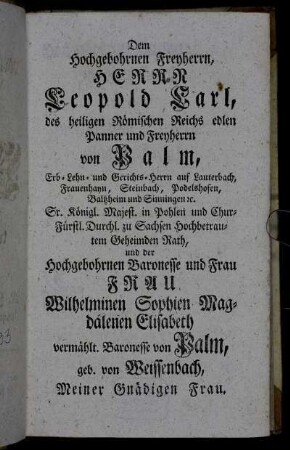 Dem
Hochgebohrnen Freyherrn,
HERRN
Leopold Carl,
des heiligen Römischen Reichs edlen
Panner und Freyherrn
von Palm,
Erb-Lehn- und Gerichts-Herrn auf Lauterbach,
Frauenhayn, Steinbach, Podelshofen,
Balzheim und Sinningen ꝛc.
Sr. Königl. Majest. in Pohlen und Chur-
Fürstl. Durchl. zu Sachsen Hochbetrau-
tem Geheimden Rath,
und der
Hochgebohrnen Baronesse und Frau
FRAU
Wilhelminen Sophien Mag-
dalenen Elisabeth
vermählt. Baronesse von Palm,
geb. von Weissenbach,
Meiner Gnädigen Frau.